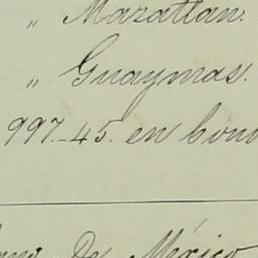 „ Mazatlan.
„ Guaymas.
997.-45. en bono
De México